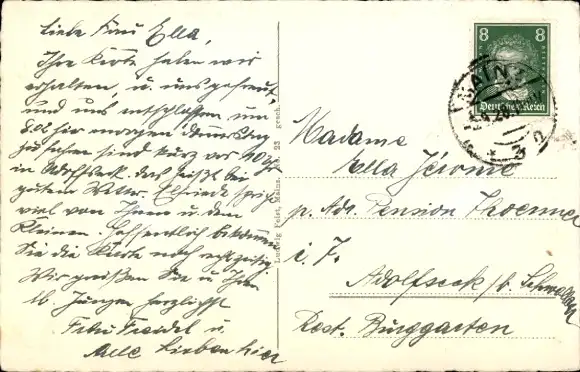 Liebe Frau Ella,
Ihre Karte haben wir
erhalten, u. uns gefreut
und uns entschlossen, um
8.06 hier morgen Dienstag
zu fahren sind kurz vor 10 Uhr
in Adolfseck. das heißt bei
gutem Wetter. Elfriede spricht
viel von Ihnen u. dem
Kleinen. Hoffentlich bekommen
Sie die Karte noch rechtzeitig.
Wir grüßen Sie u. Ihren
lb. Jungen herzlichst
Frau u.
Alle Lieben hier
Ludwig Feist, Mainz. 23 gesch.
8 8
Deutsches Reich
MAINZ
* 3
Madame
Ella Jérome
p. Adr. Pension
i. F.
Adolfseck / b. Schwalbach
Rest. Burggarten